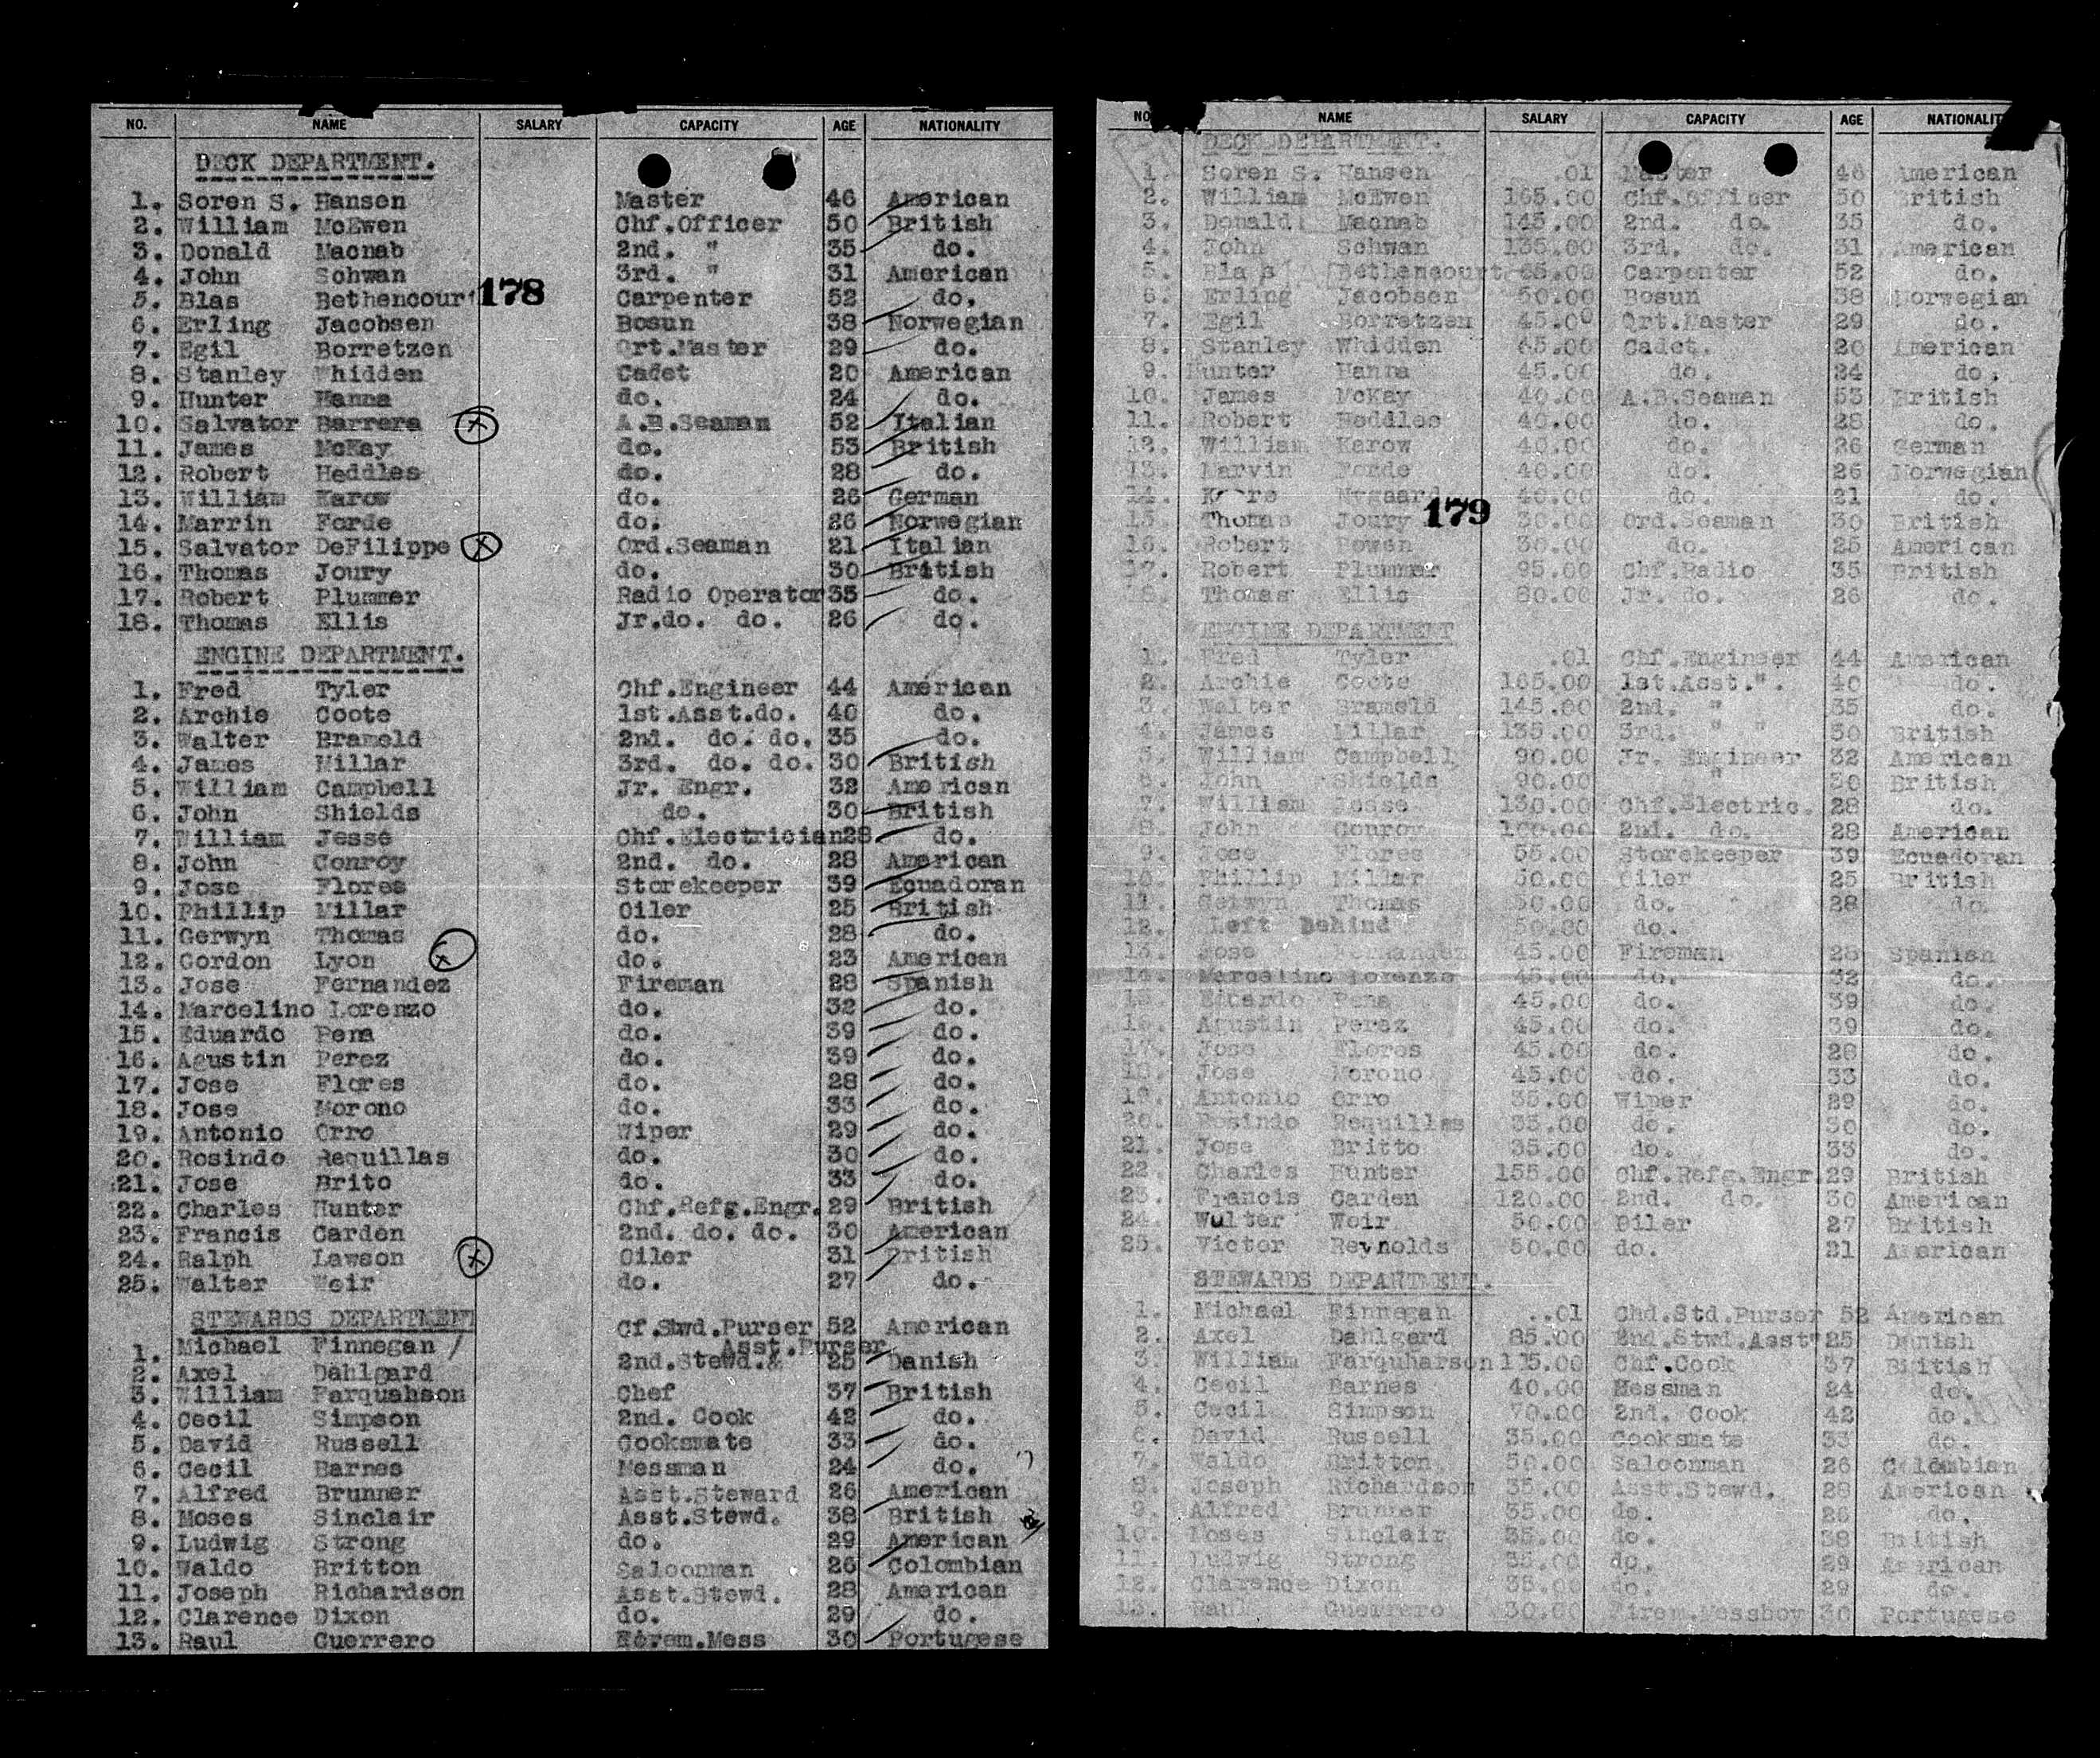 NO. NAME SALARY CAPACITY AGE NATIONALITY
DECK DEPARTMENT.
1. Soren S. Hansen Master 46 American
2. William McEwen Chf.Officer 50 British
3. Donald Macnab 2nd. " 35 do.
4. John Schwan 3rd. " 31 American
178
5. Blas Bethencour Carpenter 52 do.
6. Erling Jacobsen Bosun 38 Norwegian
7. Egil Borretzen Qrt.Master 29 do.
8. Stanley Whidden Cadet 20 American
9. Hunter Hanna do. 24 do.
10. Salvator Barrera A.B.Seaman 52 Italian
11. James McKay do. 53 British
12. Robert Heddles do. 28 do.
13. William Karow do. 26 German
14. Marrin Forde do. 26 Norwegian
15. Salvator DeFilippe Ord.Seaman 21 Italian
16. Thomas Joury do. 30 British
17. Robert Plummer Radio Operator 35 do.
18. Thomas Ellis Jr.do. do. 26 do.
ENGINE DEPARTMENT.
1. Fred Tyler Chf.Engineer 44 American
2. Archie Coote 1st.Asst.do. 40 do.
3. Walter Brameld 2nd. do. do. 35 do.
4. James Millar 3rd. do. do. 30 British
5. William Campbell Jr. Engr. 32 American
6. John Shields do. 30 British
7. William Jesse Chf.Electrician 28 do.
8. John Conroy 2nd. do. 28 American
9. Jose Flores Storekeeper 39 Ecuadoran
10. Phillip Millar Oiler 25 British
11. Gerwyn Thomas do. 28 do.
12. Gordon Lyon do. 23 American
13. Jose Fernandez Fireman 28 Spanish
14. Marcelino Lorenzo do. 32 do.
15. Eduardo Pena do. 39 do.
16. Agustin Perez do. 39 do.
17. Jose Flores do. 28 do.
18. Jose Morono do. 33 do.
19. Antonio Orro Wiper 29 do.
20. Rosindo Requillas do. 30 do.
21. Jose Brito do. 33 do.
22. Charles Hunter Chf.Refg.Engr. 29 British
23. Francis Carden 2nd. do. do. 30 American
24. Ralph Lawson Oiler 31 British
25. Walter Weir do. 27 do.
STEWARDS DEPARTMENT
1. Michael Finnegan Cf.Stwd.Purser 52 American
Asst.Purser
2. Axel Dahlgard 2nd.Stewd.& 25 Danish
3. William Farquahson Chef 37 British
4. Cecil Simpson 2nd. Cook 42 do.
5. David Russell Cooksmate 33 do.
6. Cecil Barnes Messman 24 do.
7. Alfred Brunner Asst.Steward 26 American
8. Moses Sinclair Asst.Stewd. 38 British
9. Ludwig Strong do. 29 American
10. Waldo Britton Saloonman 26 Colombian
11. Joseph Richardson Asst.Stewd. 28 American
12. Clarence Dixon do. 29 do.
13. Raul Guerrero Mess 30 Portugese
NO NAME SALARY CAPACITY AGE NATIONALIT
DECK DEPARTMENT.
1. Soren S. Hansen .01 Master 46 American
2. William McEwen 165.00 Chf.Officer 50 British
3. Donald Macnab 145.00 2nd. do. 35 do.
4. John Schwan 135.00 3rd. do. 31 American
5. Blas Bethencourt Carpenter 52 do.
6. Erling Jacobsen 50.00 Bosun 38 Norwegian
7. Egil Borretzen 45.00 Qrt.Master 29 do.
8. Stanley Whidden 65.00 Cadet. 20 American
9. Hunter Hanna 45.00 do. 24 do.
10. James McKay 40.00 A.B.Seaman 53 British
11. Robert Heddles 40.00 do. 28 do.
12. William Karow 40.00 do. 26 German
13. Marvin Forde 40.00 do. 26 Norwegian
14. Nygaard 40.00 do. 21 do.
179
15. Thomas Joury 30.00 Ord.Seaman 30 British
16. Robert Bowen 30.00 do. 25 American
17. Robert Plummer 95.00 Chf.Radio 35 British
18. Thomas Ellis 80.00 Jr. do. 26 do.
ENGINE DEPARTMENT
1. Fred Tyler .01 Chf.Engineer 44 American
2. Archie Coote 165.00 1st.Asst.". 40 do.
3. Walter Brameld 145.00 2nd. " 35 do.
4. James Millar 135.00 3rd. " " 30 British
5. William Campbell 90.00 Jr. Engineer 32 American
6. John Shields 90.00 " 30 British
7. William Jesse 130.00 Chf.Electric. 28 do.
8. John Conroy 100.00 2nd. do. 28 American
9. Jose Flores 55.00 Storekeeper 39 Ecuadoran
10. Phillip Millar 50.00 Oiler 25 British
11. Gerwyn Thomas 50.00 do. 28 do.
12. Left Behind 50.00 do.
13. Jose Fernandez 45.00 Fireman 28 Spanish
14. Marcelino Lorenzo 45.00 do. 32 do.
15. Eduardo Pena 45.00 do. 39 do.
16. Agustin Perez 45.00 do. 39 do.
17. Jose Flores 45.00 do. 28 do.
18. Jose Morono 45.00 do. 33 do.
19. Antonio Orro 35.00 Wiper 29 do.
20. Rosindo Requillas 35.00 do. 30 do.
21. Jose Britto 35.00 do. 33 do.
22. Charles Hunter 155.00 Chf.Refg.Engr. 29 British
23. Francis Carden 120.00 2nd. do. 30 American
24. Walter Weir 50.00 Oiler 27 British
25. Victor Reynolds 50.00 do. 21 American
STEWARDS DEPARTMENT.
1. Michael Finnegan ..01 Chd.Std.Purser 52 American
2. Axel Dahlgard 85.00 2nd.Stwd.Asst" 25 Danish
3. William Farquharson Chf.Cook 37 British
4. Cecil Barnes 40.00 Messman 24 do.
5. Cecil Simpson 70.00 2nd. Cook 42 do.
6. David Russell 35.00 Cooksmate 33 do.
7. Waldo Britton 50.00 Saloonman 26 Colombian
8. Joseph Richardson 35.00 Asst.Stewd. 28 American
9. Alfred Brunner 35.00 do. 26 do.
10. Moses Sinclair 35.00 do. 38 British
11. Ludwig Strong 35.00 do. 29 American
12. Clarence Dixon 35.00 do. 29 do.
13. Raul Guerrero 30.00 Firem.Messboy 30 Portugese